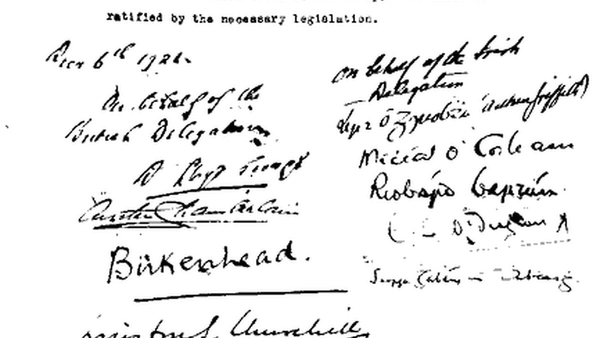 ratified by the necessary legislation.
Decr 6th 1921.
On behalf of the
British Delegation
D Lloyd George
Austen Chamberlain
Birkenhead.
Winston S. Churchill
On behalf of the Irish
Delegation
Art Ó Gríobhtha (Arthur Griffith)
Micheál Ó Coileain
Riobárd Bartún